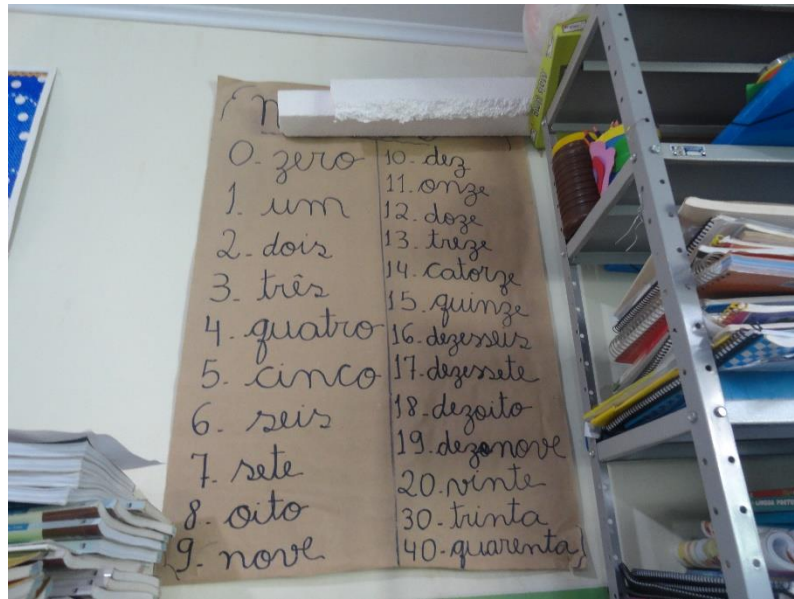 0- zero
1. um
2- dois
3- três
4- quatro
5- cinco
6- seis
7- sete
8- oito
9- nove
10- dez
11. onze
12- doze
13- treze
14- catorze
15- quinze
16- dezesseis
17- dezessete
18- dezoito
19. dezenove
20. vinte
30- trinta
40- quarenta